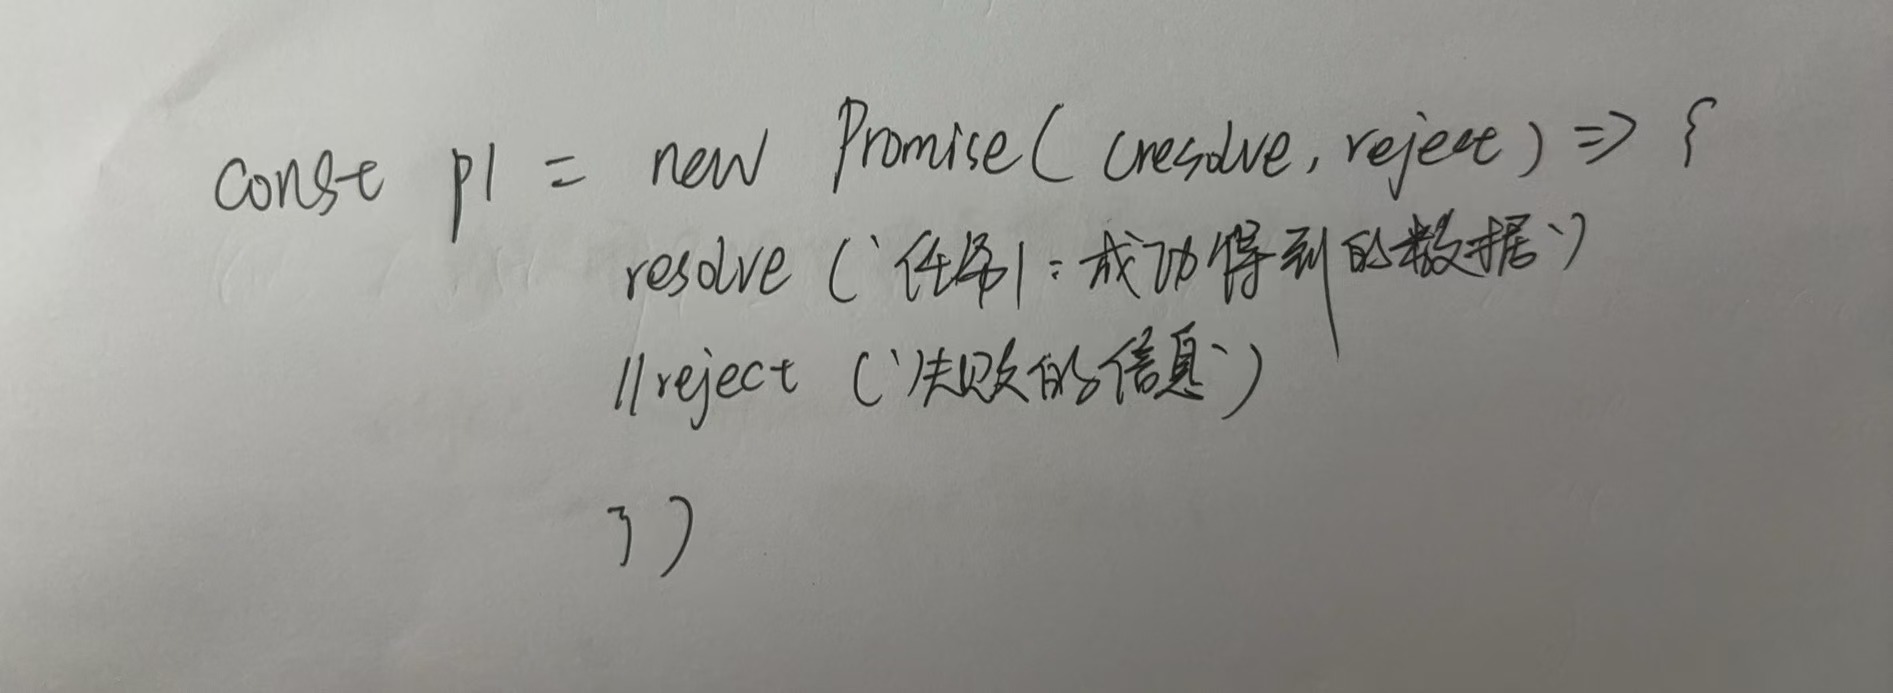 const p1 = new Promise((resolve, reject) => {
resolve (`任务1:成功得到的数据`)
//reject (`失败的信息`)
})